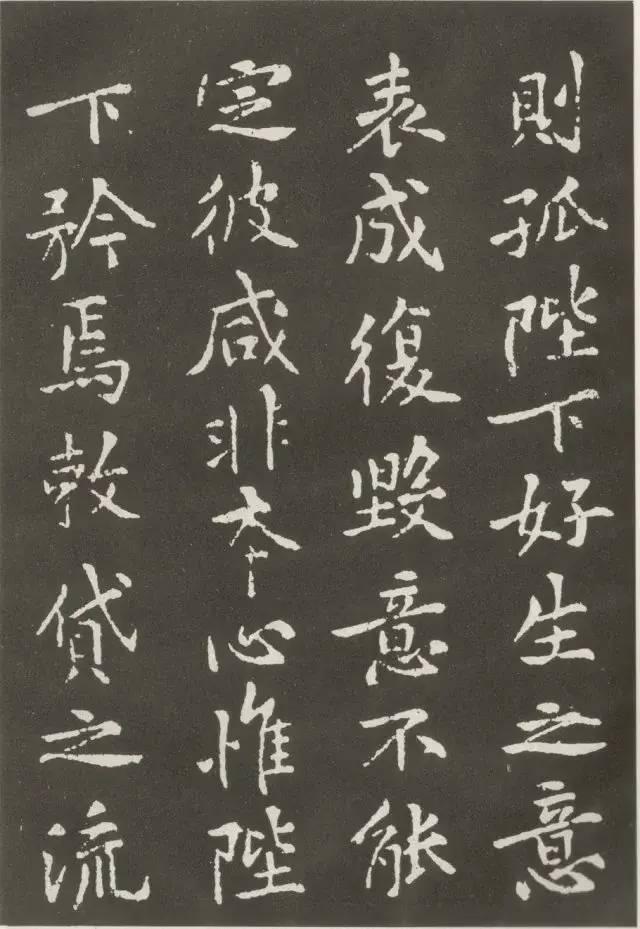 則孤陛下好生之意
表成復毀意不能
定彼咸非本心惟陛
下矜焉敕貸之流